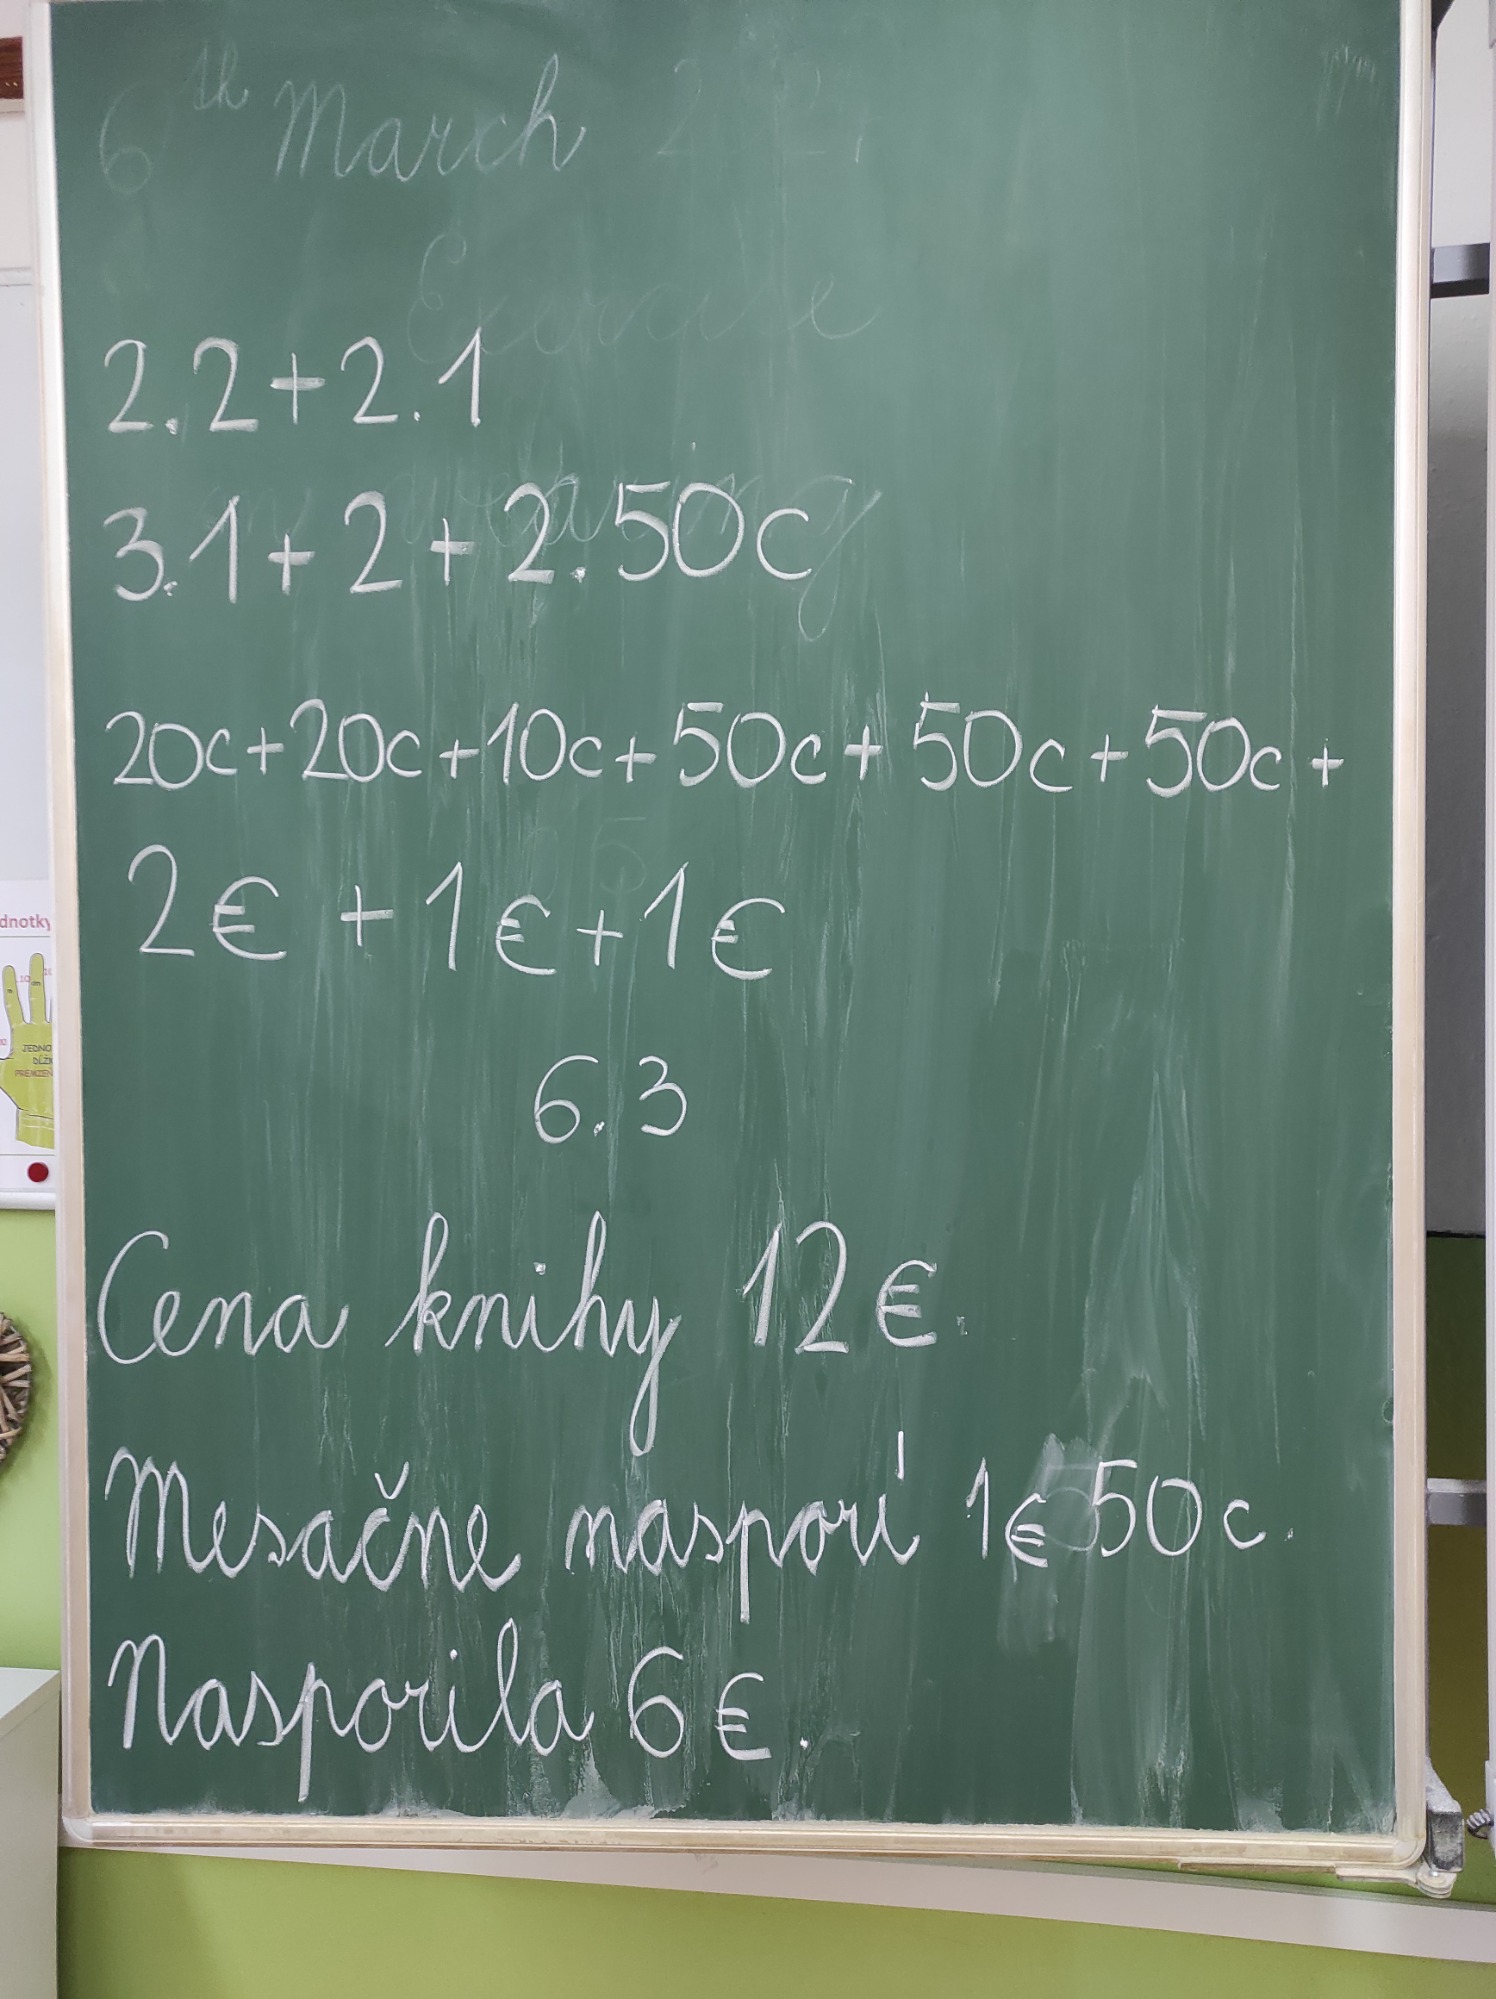 6th March
Exercise
2.2+2.1
3.1+2+2.50c
20c+20c+10c+50c+50c+50c+
2€ + 1€+1€
6.3
Cena knihy 12€.
Mesačne nasporí 1€ 50c.
Nasporila 6€.
dnotky
JEDNO